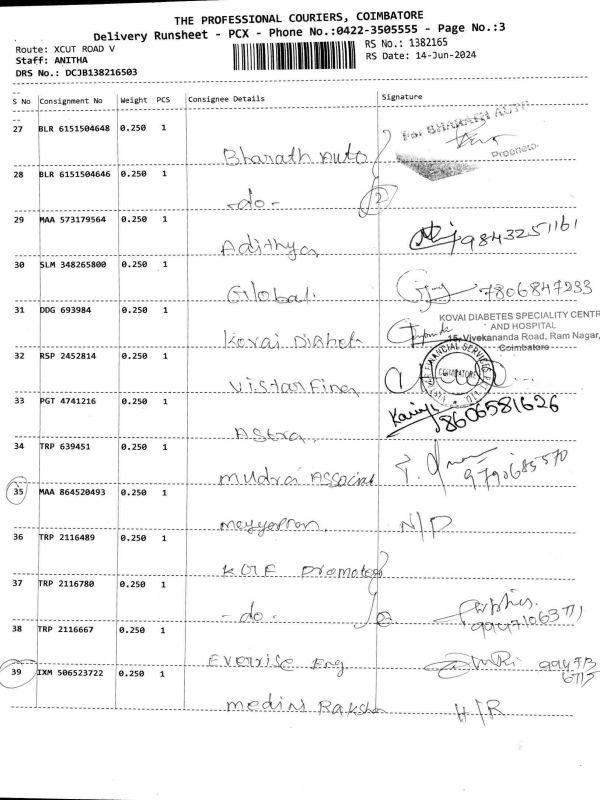 THE PROFESSIONAL COURIERS, COIMBATORE
Delivery Runsheet - PCX - Phone No.:0422-3505555 - Page No.:3
Route: XCUT ROAD V
RS No.: 1382165
Staff: ANITHA
RS Date: 14-Jun-2024
DRS No.: DCJB138216503
S No Consignment No Weight PCS Consignee Details Signature
For BHARATH AUTO
27 BLR 6151504648 0.250 1
Bharath Auto
28 BLR 6151504646 0.250 1
-do- 2
29 MAA 573179564 0.250 1
Adithya 9843251161
30 SLM 348265800 0.250 1
Global 7806847233
31 DDG 693984 0.250 1
KOVAI DIABETES SPECIALITY CENTR
AND HOSPITAL
15, Vivekananda Road, Ram Nagar,
Coimbatore
Kovai Diabet
32 RSP 2452814 0.250 1
Vistar Finan
COIMBATORE
33 PGT 4741216 0.250 1
Astra 8606581626
34 TRP 639451 0.250 1
Mudra Associat 9790685570
35 MAA 864520493 0.250 1
N/D
36 TRP 2116489 0.250 1
Promoter
37 TRP 2116780 0.250 1
-do- 2
9947106371
38 TRP 2116667 0.250 1
Exerise Eng
39 IXM 506523722 0.250 1
Medini Raksha H/R